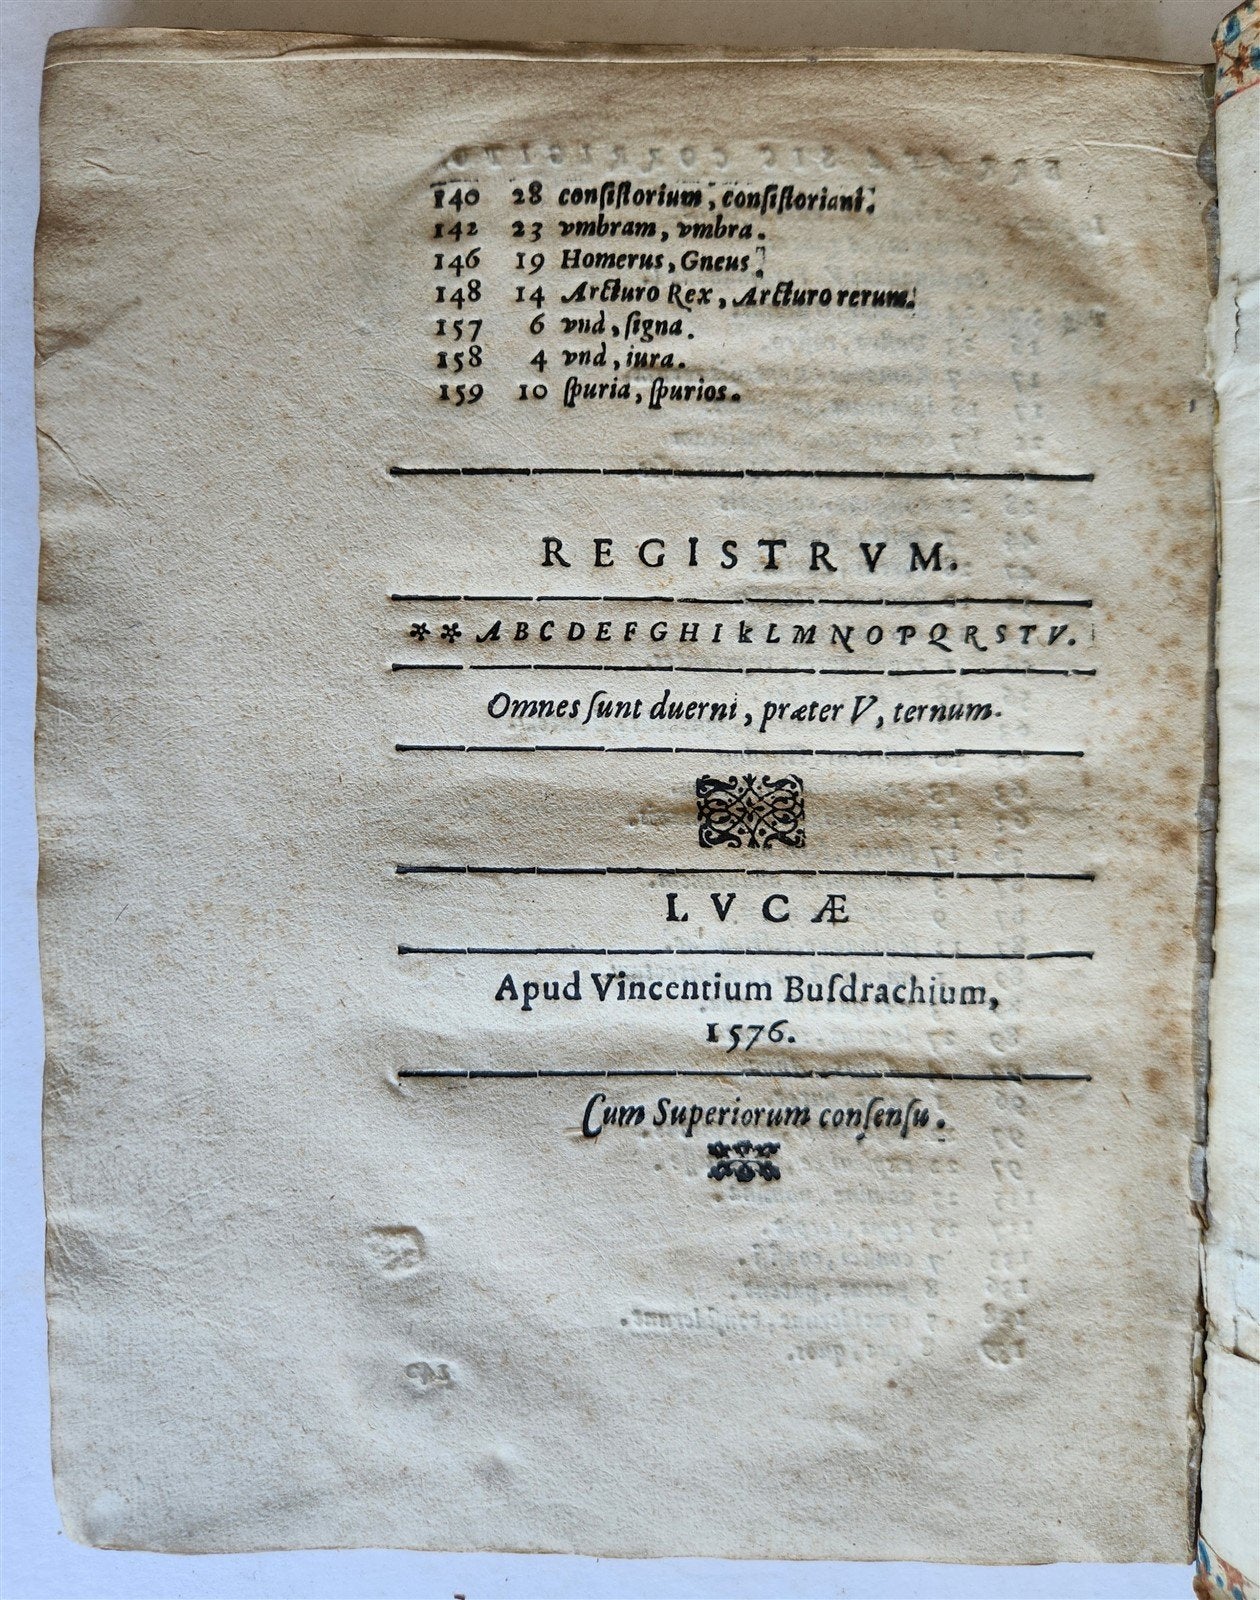 140 28 consiſtorium, consiſtoriani.
142 23 vmbram, vmbra.
146 19 Homerus, Gneus.
148 14 Arcturo Rex, Arcturo rerum.
157 6 vnd, ſigna.
158 4 vnd, iura.
159 10 ſpuria, ſpurios.
REGISTRVM.
** A B C D E F G H I k L M N O P Q R S T V.
Omnes ſunt duerni, præter V, ternum.
LVCÆ
Apud Vincentium Buſdrachium,
1576.
Cum Superiorum conſenſu.